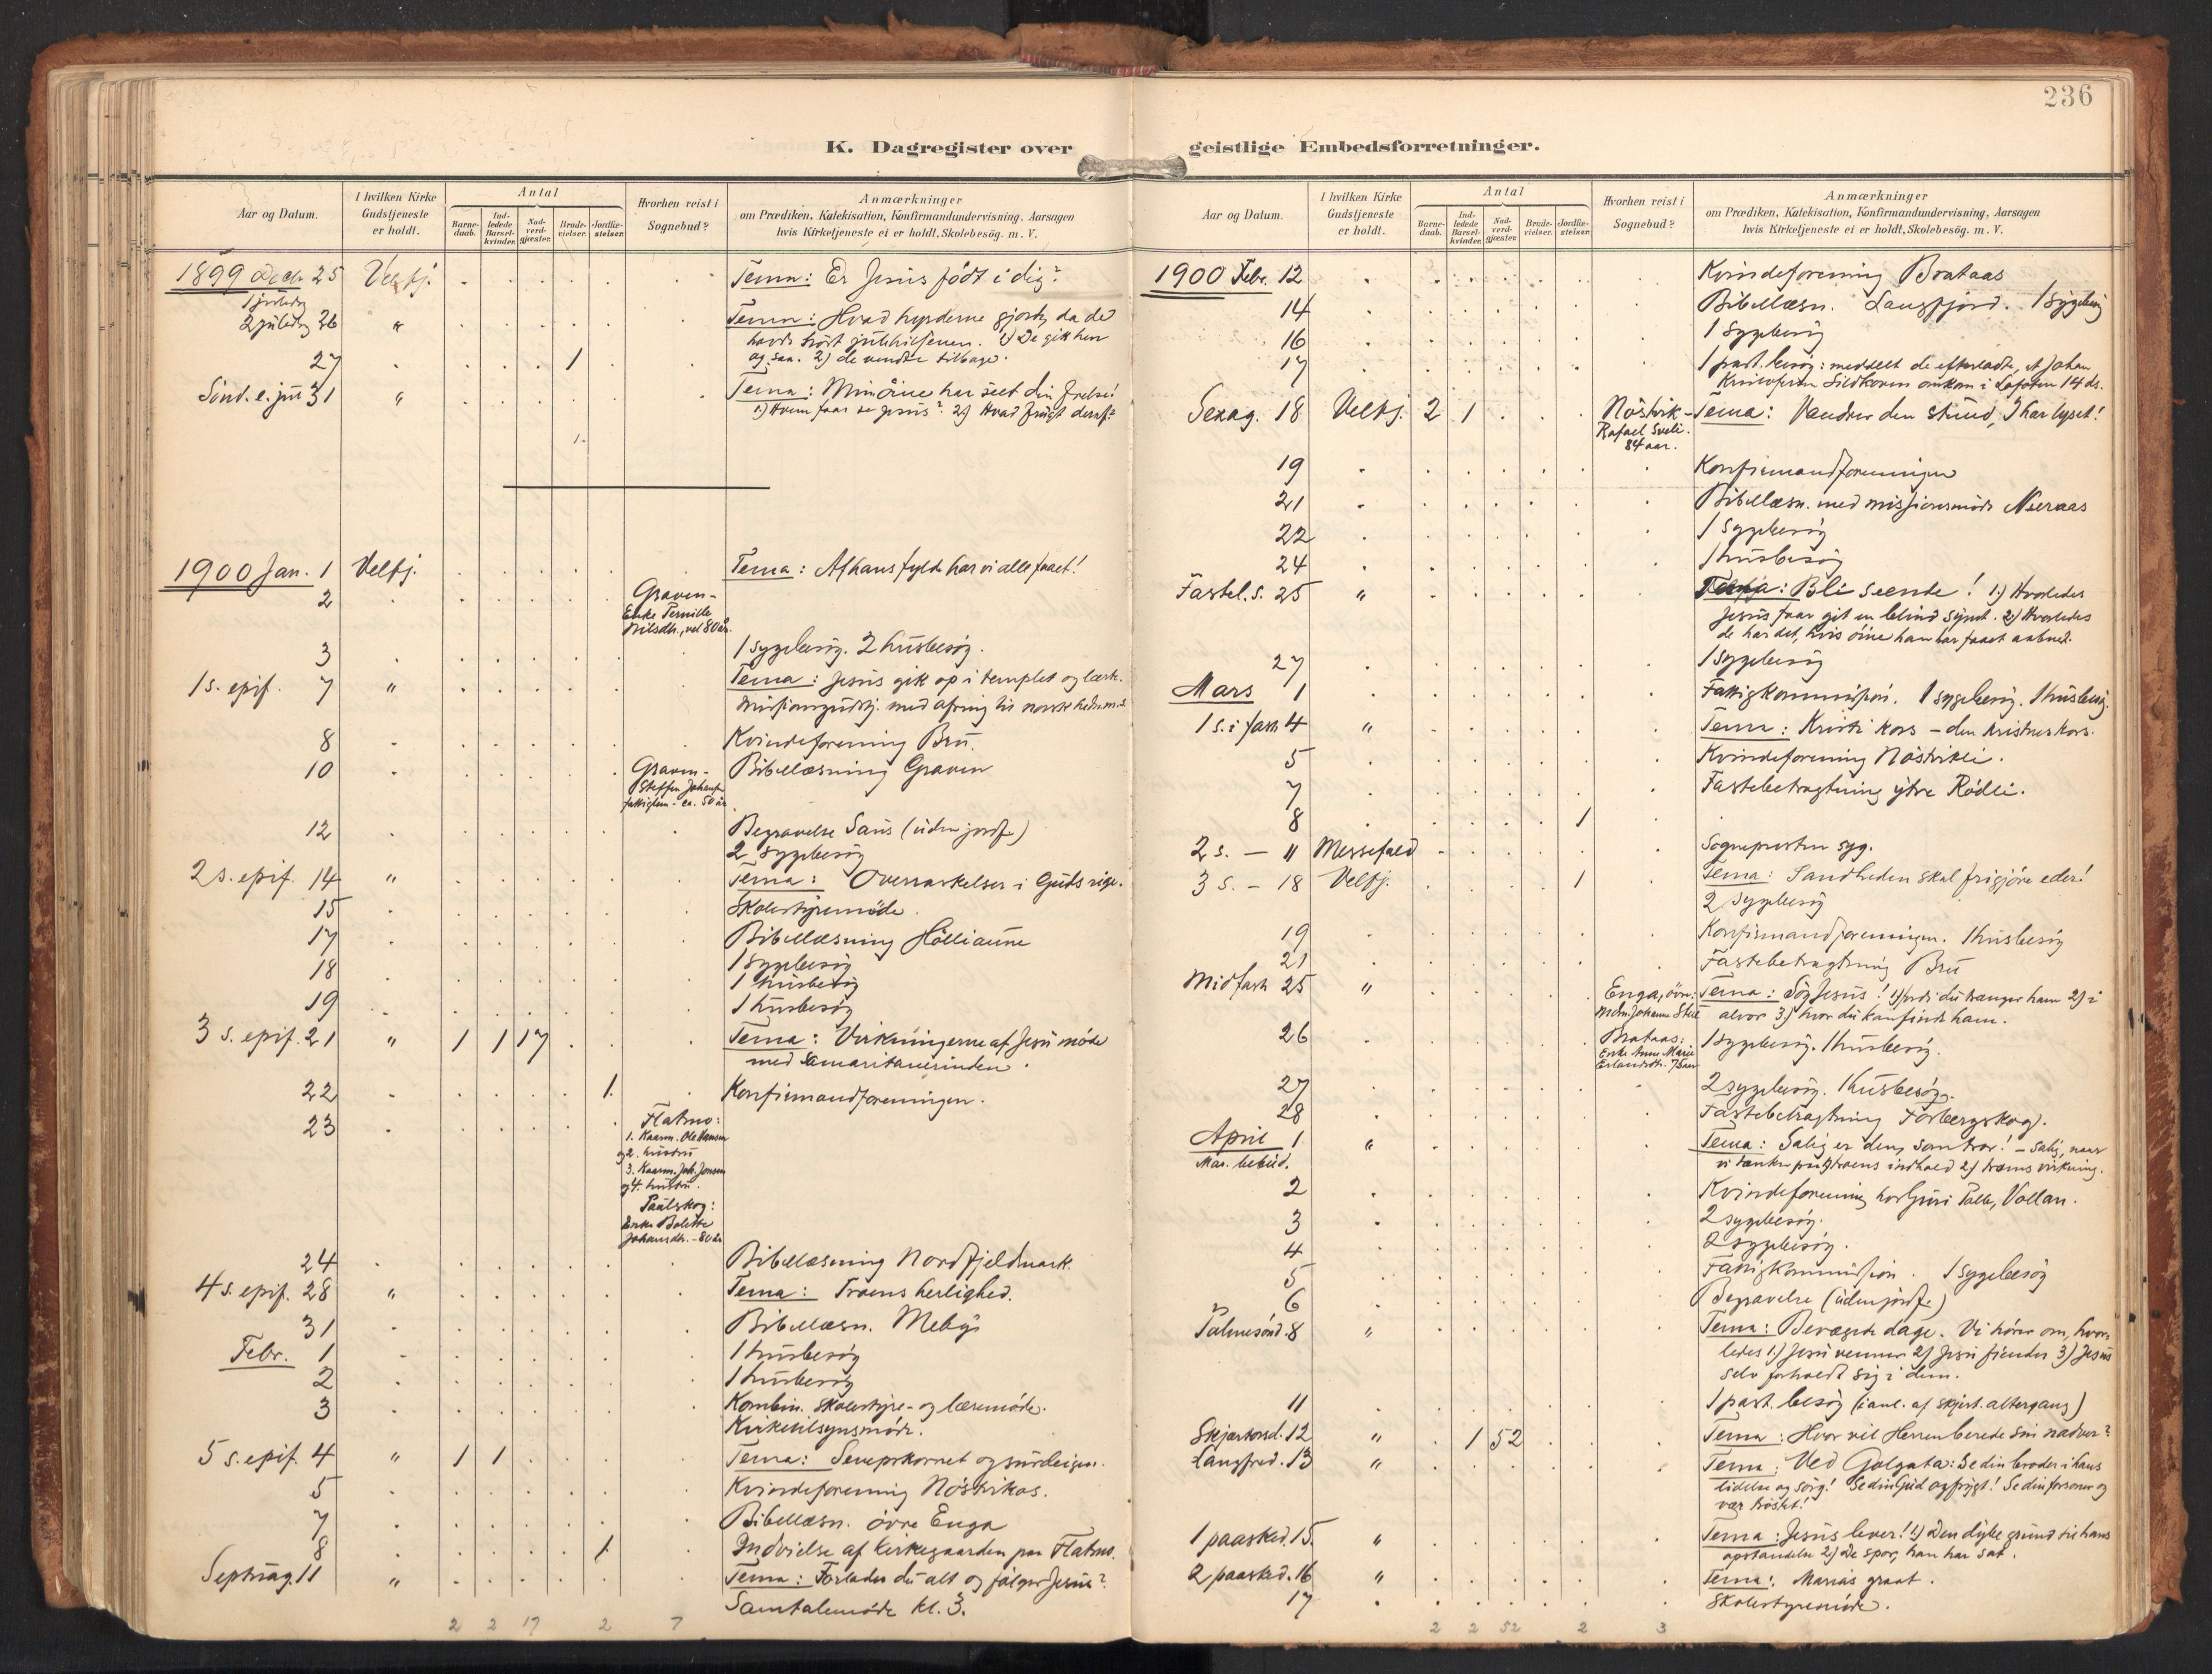 236
K. Dagregister over geistlige Embedsforretninger.
Aar og Datum.
I hvilken Kirke Gudstjeneste er holdt.
Antal
Barnedaab.
Indledede Barselkvinder.
Nadverdgjæster.
Brudevielser.
Jordfæstelser.
Hvorhen reist i Sognebud?
Anmærkninger
om Prædiken, Katekisation, Konfirmandundervisning, Aarsagen
hvis Kirketjeneste ei er holdt, Skolebesög. m. V.
1899 Decb. 25 Velfj. Tema: Er Jesus født i dig?
1 juledag
2 juledag 26 " Tema: Hvad hyrderne gjorde, da de
havde hørt julehilsenen. 1) De gik hen
og saa. 2) de vendte tilbage.
27 1
Sønd. e. jul 31 " Tema: Mine øine har seet din frelse!
1) Hvem faar se Jesus? 2) Hvad frugt deraf?
1
1900 Jan. 1 Velfj. Tema: Af hans fylde har vi alle faaet!
2 Graven-
Enke Pernille
Nilsdtr., vel 80 år.
3 1 sygebesøg. 2 husbesøg.
1 s. epif. 7 " Tema: Jesus gik op i templet og lærte.
Missionsgudstj. med ofring til norske hedn.m.s.
8 Kvindeforening Bru.
10 Graven- Bibellæsning Graven
Steffen Johansen
fattiglem - ca. 50 år
12 Begravelse Saus (uden jordf.)
2 sygebesøg
2 s. epif. 14 " Tema: Overraskelser i Guds rige.
15 Skolestyremøde.
17 Bibellæsning Hølliaune
18 1 sygebesøg
1 husbesøg
19 1 husbesøg
3 s. epif. 21 " 1 1 17 Tema: Virkningerne af Jesu møde
med Samaritanerinden.
22 1. Konfirmandforeningen.
23 Flatmo:
1. Kaarm. Ole Hansen
og 2. hustru
3. Kaarm. Joh. Jonsen
og 4. hustru.
Paulskog:
Enke Bolette
Johansdtr. - 80 år
24 Bibellæsning Nordfjeldmark.
4 s. epif. 28 " Tema: Troens herlighed.
31 Bibellæsn. Meby
Febr. 1 1 husbesøg
2 1 husbesøg
3 Kombin. skolestyre- og læremøde.
Kirketilsynsmøde.
5 s. epif. 4 " 1 1 Tema: Senepskornet og surdeigen.
5 Kvindeforening Nøstvikas.
7 Bibellæsn. øvre Enga
8 1 Indvielse af kirkegaarden paa Flatmo.
Septuag. 11 " Tema: Forlader du alt og følger Jesus?
Samtalemøde kl. 3.
2 2 17 2 7
Aar og Datum.
I hvilken Kirke Gudstjeneste er holdt.
Antal
Barnedaab.
Indledede Barselkvinder.
Nadverdgjæster.
Brudevielser.
Jordfæstelser.
Hvorhen reist i Sognebud?
Anmærkninger
om Prædiken, Katekisation, Konfirmandundervisning, Aarsagen
hvis Kirketjeneste ei er holdt, Skolebesög. m. V.
1900 Febr. 12 Kvindeforening Brataas
14 Bibellæsn. Langfjord. 1 sygebesøg
16 1 sygebesøg
17 1 past. besøg: meddelt de efterladte, at Johan
Kristofersen Sildhoven omkom i Lofoten 14 ds.
Sexag. 18 Velfj. 2 1 Nøstvik- Tema: Vandrer den stund, I har lyset!
Rafael Sveli.
84 aar.
19 Konfirmandforeningen
21 Bibellæsn. med missionsmøde Aseraas
22 1 sygebesøg
24 1 husbesøg
Fastel.s. 25 " Tema: Bli seende! 1) Hvorledes
Jesus faar git en blind synet. 2) Hvorledes
de har det, hvis øine han har faaet aabnet.
27 1 sygebesøg
Mars 1 Fattigkommission. 1 sygebesøg. 1 husbesøg.
1 s. i faste 4 " Tema: Kristi kors - den kristnes kors.
5 Kvindeforening Nøstvikli.
7 Fastebetragtning ytre Rødli.
8 1
2 s. — 11 Messefald Sognepresten syg.
3 s. - 18 Velfj. 1 Tema: Sandheden skal frigjøre eder!
2 sygebesøg
19 Konfirmandforeningen. 1 husbesøg
21 Fastebetragtning Bru
Midfaste 25 " Enga, øvre: Tema: Søg Jesus! 1) fordi du trænger ham 2) i
alvor 3) hvor du kan finde ham.
26 Brataas: 1 sygebesøg. 1 husbesøg.
Enke Anne Marie
Erlandsdtr. 75 aar
27 2 sygebesøg. 1 husbesøg.
28 Fastebetragtning Forbergskog.
April 1 " Tema: Salig er den, som tror! - Salig, naar
Mar. bebud. vi tænker paa 1) troens indhold 2) troens virkning.
2 Kvindeforening hos Guri Palle, Vollan.
3 2 sygebesøg.
4 2 sygebesøg.
5 Fattigkommission. 1 sygebesøg
6 Begravelse (uden jordf.)
Palmesønd. 8 " Tema: Bevægede dage. Vi hører om, hvor-
ledes 1) Jesu venner 2) Jesu fiender 3) Jesus
selv forholdt sig i dem.
11 1 past. besøg (i anl. af skjært. altergang)
Skjærtorsd. 12 " 1 52 Tema: Hvor vil Herren berede sin nadver?
Langfred. 13 " Tema: Ved Golgata: Se din broder i hans
lidelse og sørg! Se din Gud og frygt! Se din forsoner og
vær trøstet!
1 paasked. 15. " Tema: Jesus lever! 1) Den dybe grund til hans
opstandelse 2) De spor, han har sat.
2 paasked. 16 " Tema: Marias graat.
17 Skolestyremøde.
2 2 52 2 3